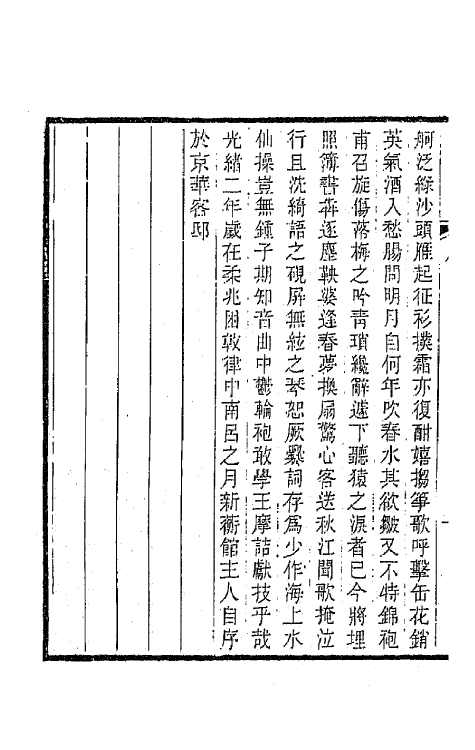 舸泛綠沙頭雁起征衫撲霜亦復酣嬉搊箏歌呼擊缶花銷
英氣酒入愁腸問明月自何年吹春水其欲皺又不特錦袍
甫召旋傷落梅之吟靑瑣纔辭遽下聽猿之淚者已今將埋
照簿書犇逐塵鞅婆逢春夢換扇驚心客送秋江聞歌掩泣
行且洗綺語之硯屏無絃之琴恕厥曩詞存爲少作海上水
仙操豈無鍾子期知音曲中鬱輪袍敢學王摩詰獻技乎哉
光緒二年歲在柔兆困敦律中南呂之月新蘅館主人自序
於京華客邸